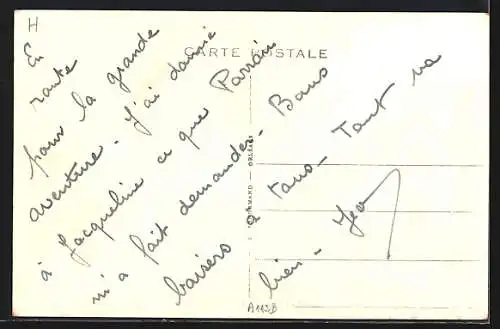 H
CARTE POSTALE
En
route
pour la grande
aventure - J'ai donné
à Jacqueline ce que Parrain
m'a fait demander - Bons
baisers à tous - Tout va
bien - Jean
ORLÉANS
A113B